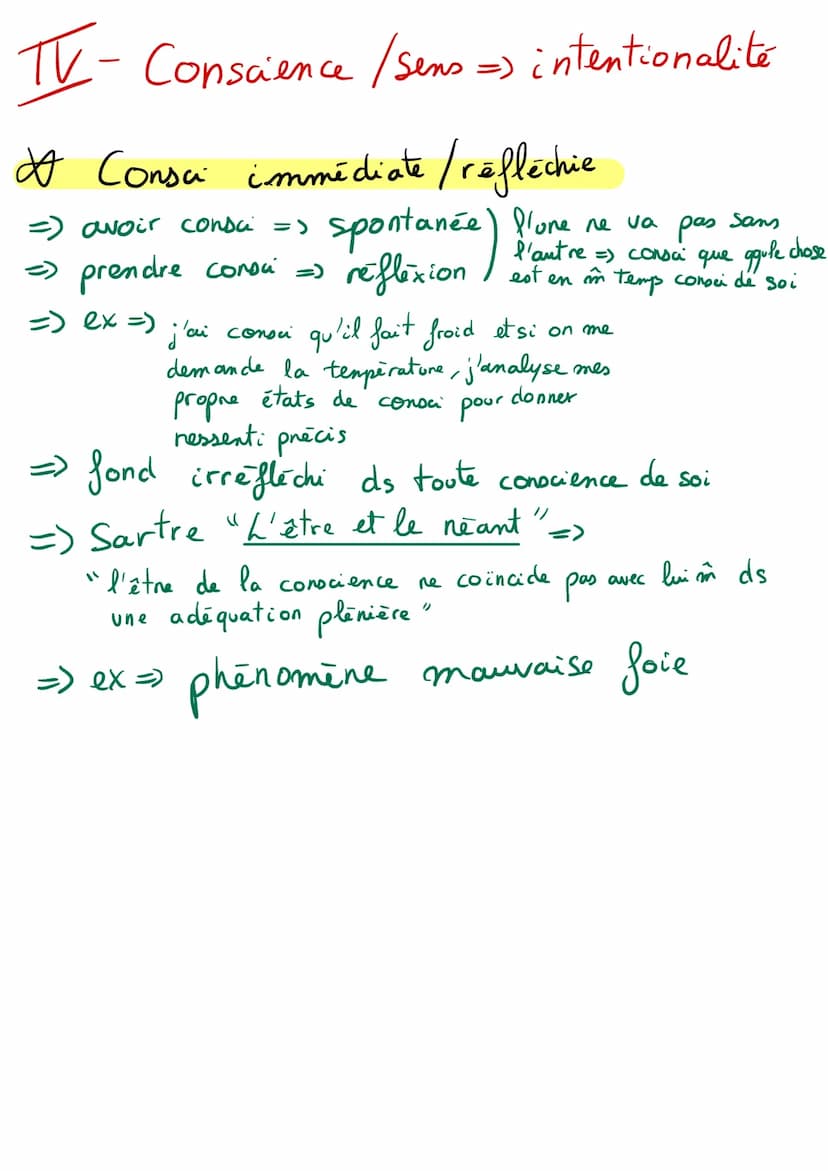 IV - Conscience / sens => intentionalité
Consci immédiate / réfléchie
=> avoir consci => spontanée) l'une ne va pas sans
l'autre => consci que qqule chose
=> prendre consci => réfléxion / est en m̂ temp consci de soi
=> ex => j'ai consci qu'il fait froid et si on me
demande la température, j'analyse mes
propre états de consci pour donner
ressenti précis
=> fond irréfléchi ds toute conscience de soi
=> Sartre "L'être et le néant" =>
"l'être de la conscience ne coïncide pas avec lui m̂ ds
une adéquation plénière"
=> ex => phénomène mauvaise foie